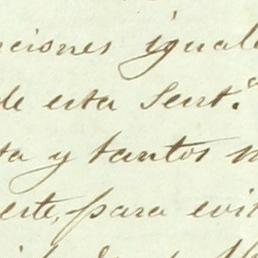 nciones iguale
de esta Sent.a
ta y tantos
este, para evi